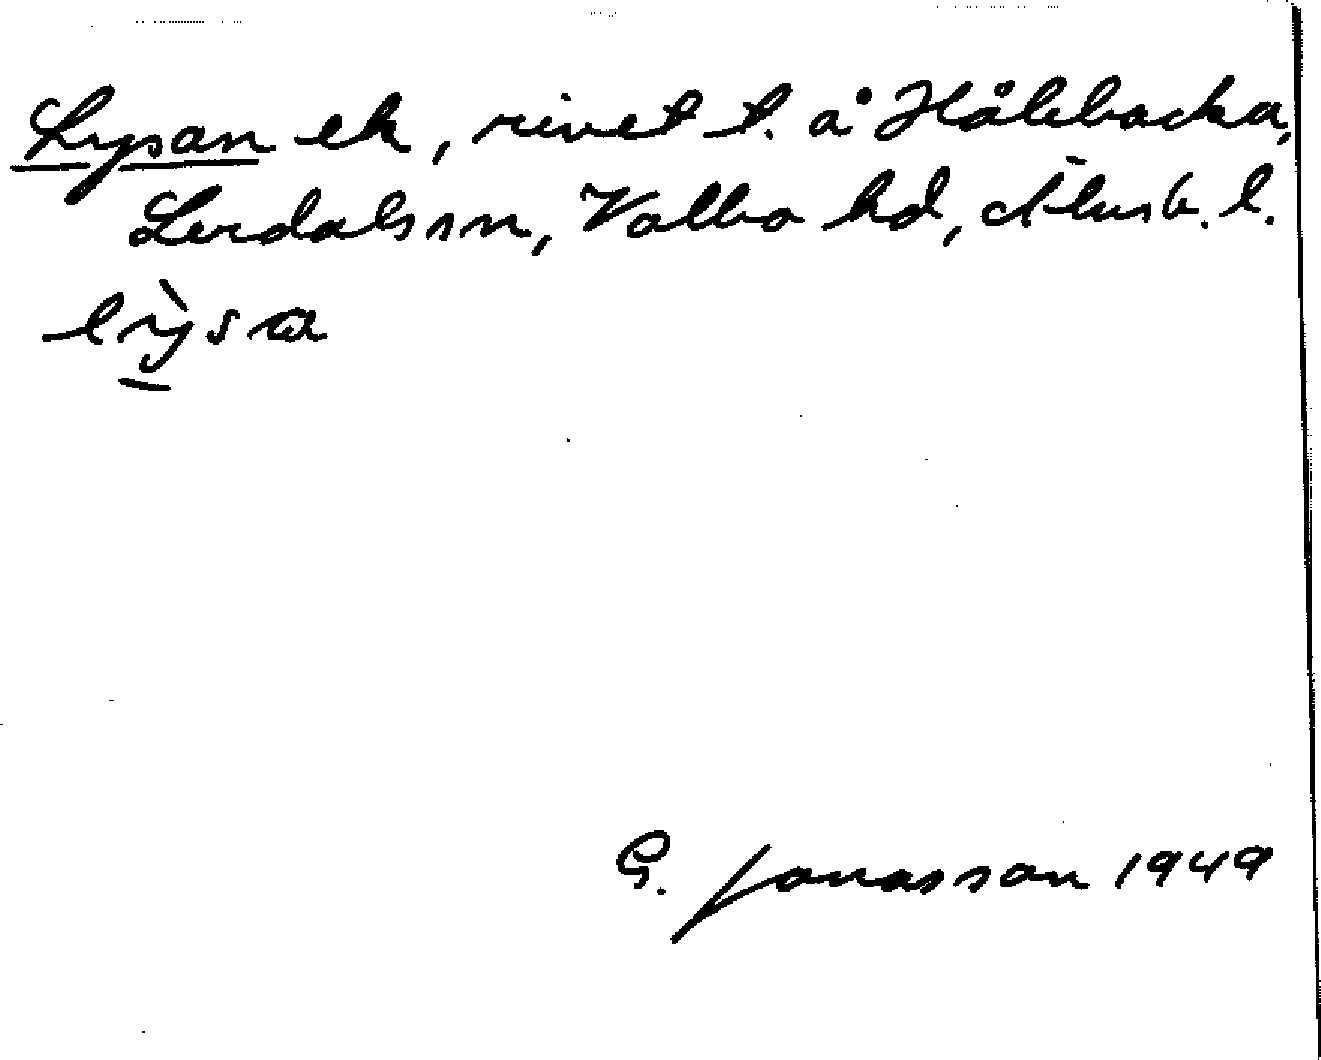 Lysan ek, rivet t. å Hålebacka,
Lerdals sn, Valbo hd, Älvsb. l.
lỳsa
G. Jonasson 1949